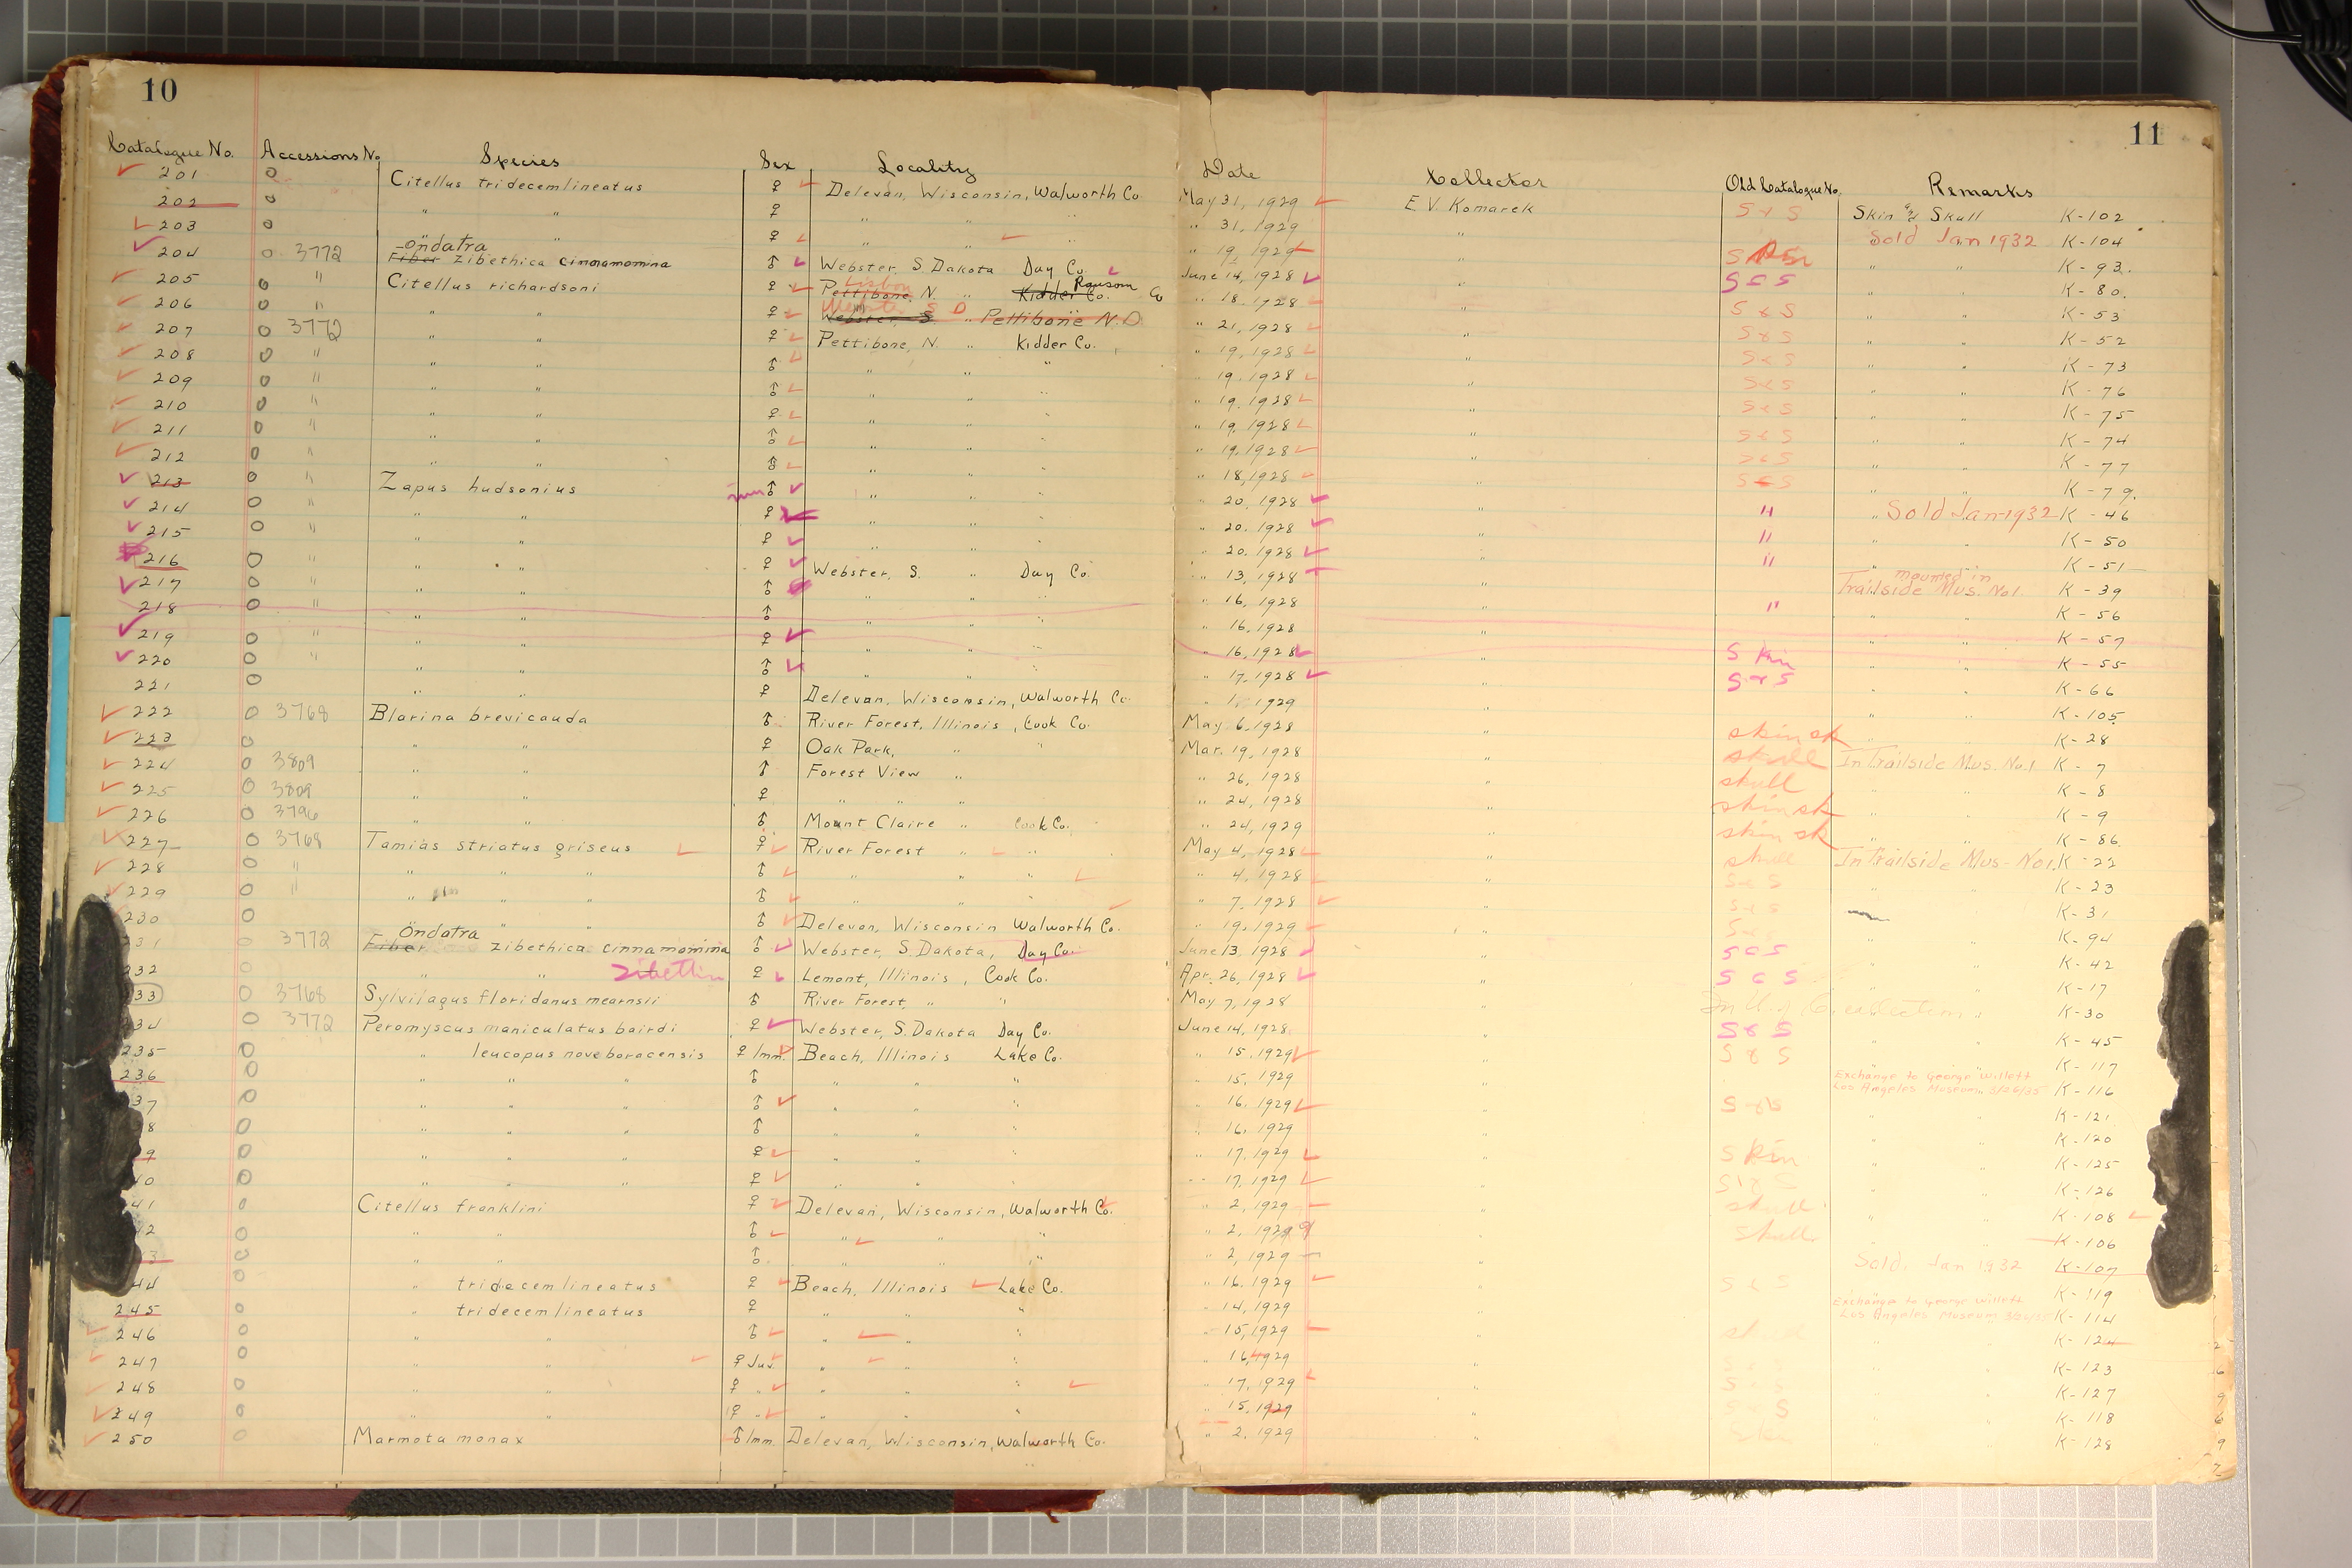 10
11
Catalogue No. Accessions No. Species Sex Locality Date Collector Old Catalogue No. Remarks
201 0 Citellus tridecemlineatus ♀ Delevan, Wisconsin, Walworth Co. May 31, 1929 E.V. Komarek S & S Skin & Skull K-102
202 0 " " ♀ " " " " 31, 1929 " Sold Jan 1932 K-104
203 0 " " ♀ " " " " 19, 1929 " " " K-93
204 0 3772 Ondatra Fiber zibethica cinnamomina ♂ Webster, S. Dakota Day Co. June 14, 1928 " S & S " " K-80
205 0 " Citellus richardsoni ♀ Pettibone, N. " Lisbon Kidder Co. Ransom Co " 18, 1928 " S & S " " K-53
206 0 " " " ♀ Webster S " S D Pettibone N.D. " 21, 1928 " S & S " " K-52
207 0 3772 " " ♀ Pettibone, N. " Kidder Co. " 19, 1928 " S & S " " K-73
208 0 " " " ♂ " " " " 19, 1928 " S & S " " K-76
209 0 " " " ♂ " " " " 19, 1928 " S & S " " K-75
210 0 " " " ♀ " " " " 19, 1928 " S & S " " K-74
211 0 " " " ♂ " " " " 19, 1928 " S & S " " K-77
212 0 " " " ♂ " " " " 18, 1928 " S & S " " K-79
213 0 " Zapus hudsonius ♂ " " " " 20, 1928 " " Sold Jan 1932 K-46
214 0 " " " ♀ " " " " 20, 1928 " " " " K-50
215 0 " " " ♀ " " " " 20, 1928 " " " " K-51
216 0 " " " ♀ Webster, S. " Day Co. " 13, 1928 " mounted in Trailside Mus. No 1. K-39
217 0 " " " ♂ " " " " 16, 1928 " " " " K-56
218 0 " " " ♂ " " " " 16, 1928 " " " K-57
219 0 " " " ♀ " " " " 16, 1928 " Skin " " K-55
220 0 " " " ♂ " " " " 17, 1928 " S & S " " K-66
221 0 " " ♀ Delevan, Wisconsin, Walworth Co. " 1, 1929 " " " K-105
222 0 3768 Blarina brevicauda ♂ River Forest, Illinois, Cook Co. May 6, 1928 " skin sk " " K-28
223 0 " " ♀ Oak Park, " " Mar. 19, 1928 " skull In Trailside Mus. No. 1 K-7
224 0 3809 " " ♂ Forest View " " 26, 1928 " skull " " K-8
225 0 3809 " " ♀ " " " " 24, 1928 " skin sk " " K-9
226 0 3796 " " ♂ Mount Claire " Cook Co. " 24, 1929 " skin sk " " K-86
227 0 3768 Tamias striatus griseus ♀ River Forest " " May 4, 1928 " skull In Trailside Mus. No 1. K-22
228 0 " " " " ♂ " " " " 4, 1928 " S & S " " K-23
229 0 " " " " ♂ " " " " 7, 1928 " S & S " K-31
230 0 " " " ♂ Delevan, Wisconsin Walworth Co. " 19, 1929 " S & S " " K-94
31 0 3772 Ondatra Fiber zibethica cinnamomina ♂ Webster, S. Dakota, Day Co. June 13, 1928 " S & S " " K-42
232 0 " " zibethica ♀ Lemont, Illinois, Cook Co. Apr. 26, 1928 " S & S " " K-17
33 0 3768 Sylvilagus floridanus mearnsii ♂ River Forest, " " May 7, 1928 " " K-30
234 0 3772 Peromyscus maniculatus bairdi ♀ Webster, S. Dakota Day Co. June 14, 1928 " S & S " " K-45
235 0 " leucopus noveboracensis ♀ Imm. Beach, Illinois Lake Co. " 15, 1929 " S & S " " K-117
236 0 " " " ♂ " " " " 15, 1929 " Exchange to George Willett Los Angeles Museum 3/26/35 K-116
37 0 " " " ♂ " " " " 16, 1929 " S & S " " K-121
8 0 " " " ♂ " " " " 16, 1929 " " " K-120
9 0 " " " ♀ " " " " 17, 1929 " Skin " " K-125
40 0 " " " ♀ " " " " 17, 1929 " S & S " " K-126
41 0 Citellus franklini ♀ Delevan, Wisconsin, Walworth Co. " 2, 1929 " skull " " K-108
42 0 " " ♂ " " " " 2, 1929 " skull " K-106
3 0 " " ♂ " " " " 2, 1929 " Sold, Jan 1932 K-107
44 0 " tridecemlineatus ♀ Beach, Illinois Lake Co. " 16, 1929 " S & S " " K-119
245 0 " tridecemlineatus ♀ " " " " 14, 1929 " Exchange to George Willett Los Angeles Museum 3/26/35 K-114
246 0 " " ♂ " " " " 15, 1929 " skull " " K-124
247 0 " " ♀ Juv. " " " " 16, 1929 " S & S " " K-123
248 0 " " ♀ " " " " " 17, 1929 " S & S " " K-127
249 0 " " ♀ " " " " " 15, 1929 " S & S " " K-118
250 0 Marmota monax ♂ Imm. Delevan, Wisconsin, Walworth Co. " 2, 1929 " Skin " " K-128